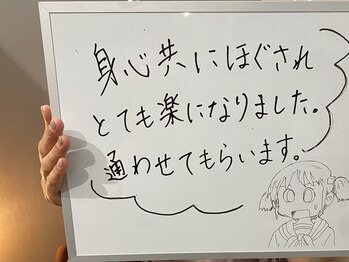 身心共にほぐされ
とても楽になりました。
通わせてもらいます。